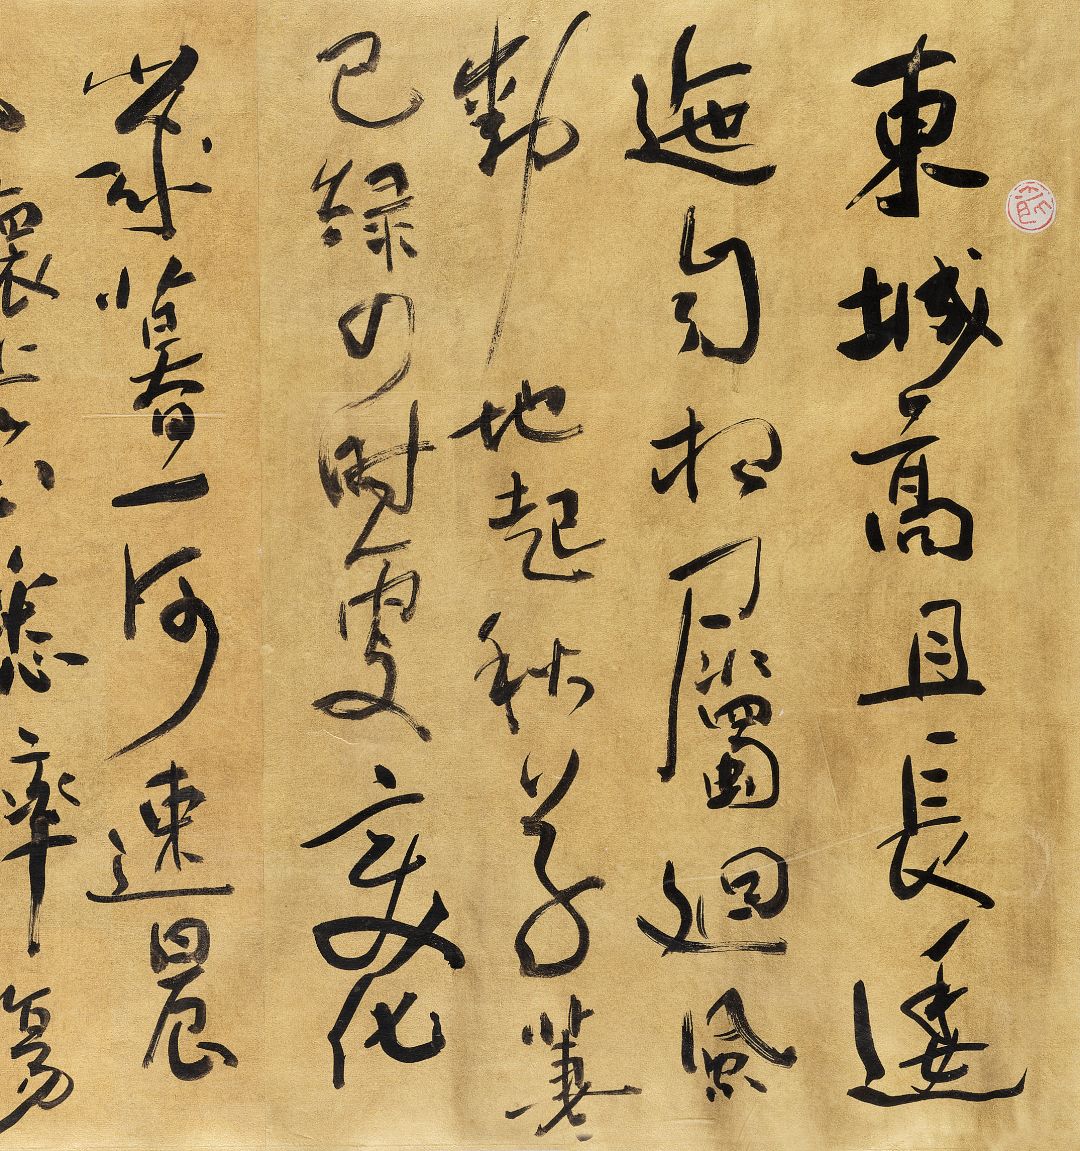 東城高且長逶
迤自相屬迴風
動地起秋草萋
已綠四時更變化
歲暮一何速晨
懷苦心蟋蟀傷